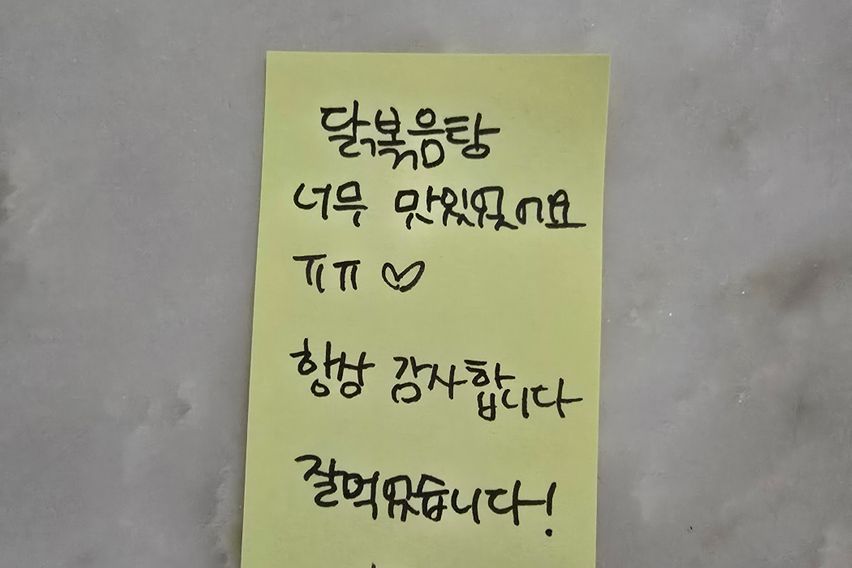 닭볶음탕
너무 맛있었어요
ㅠㅠ ♡
항상 감사합니다
잘먹었습니다!